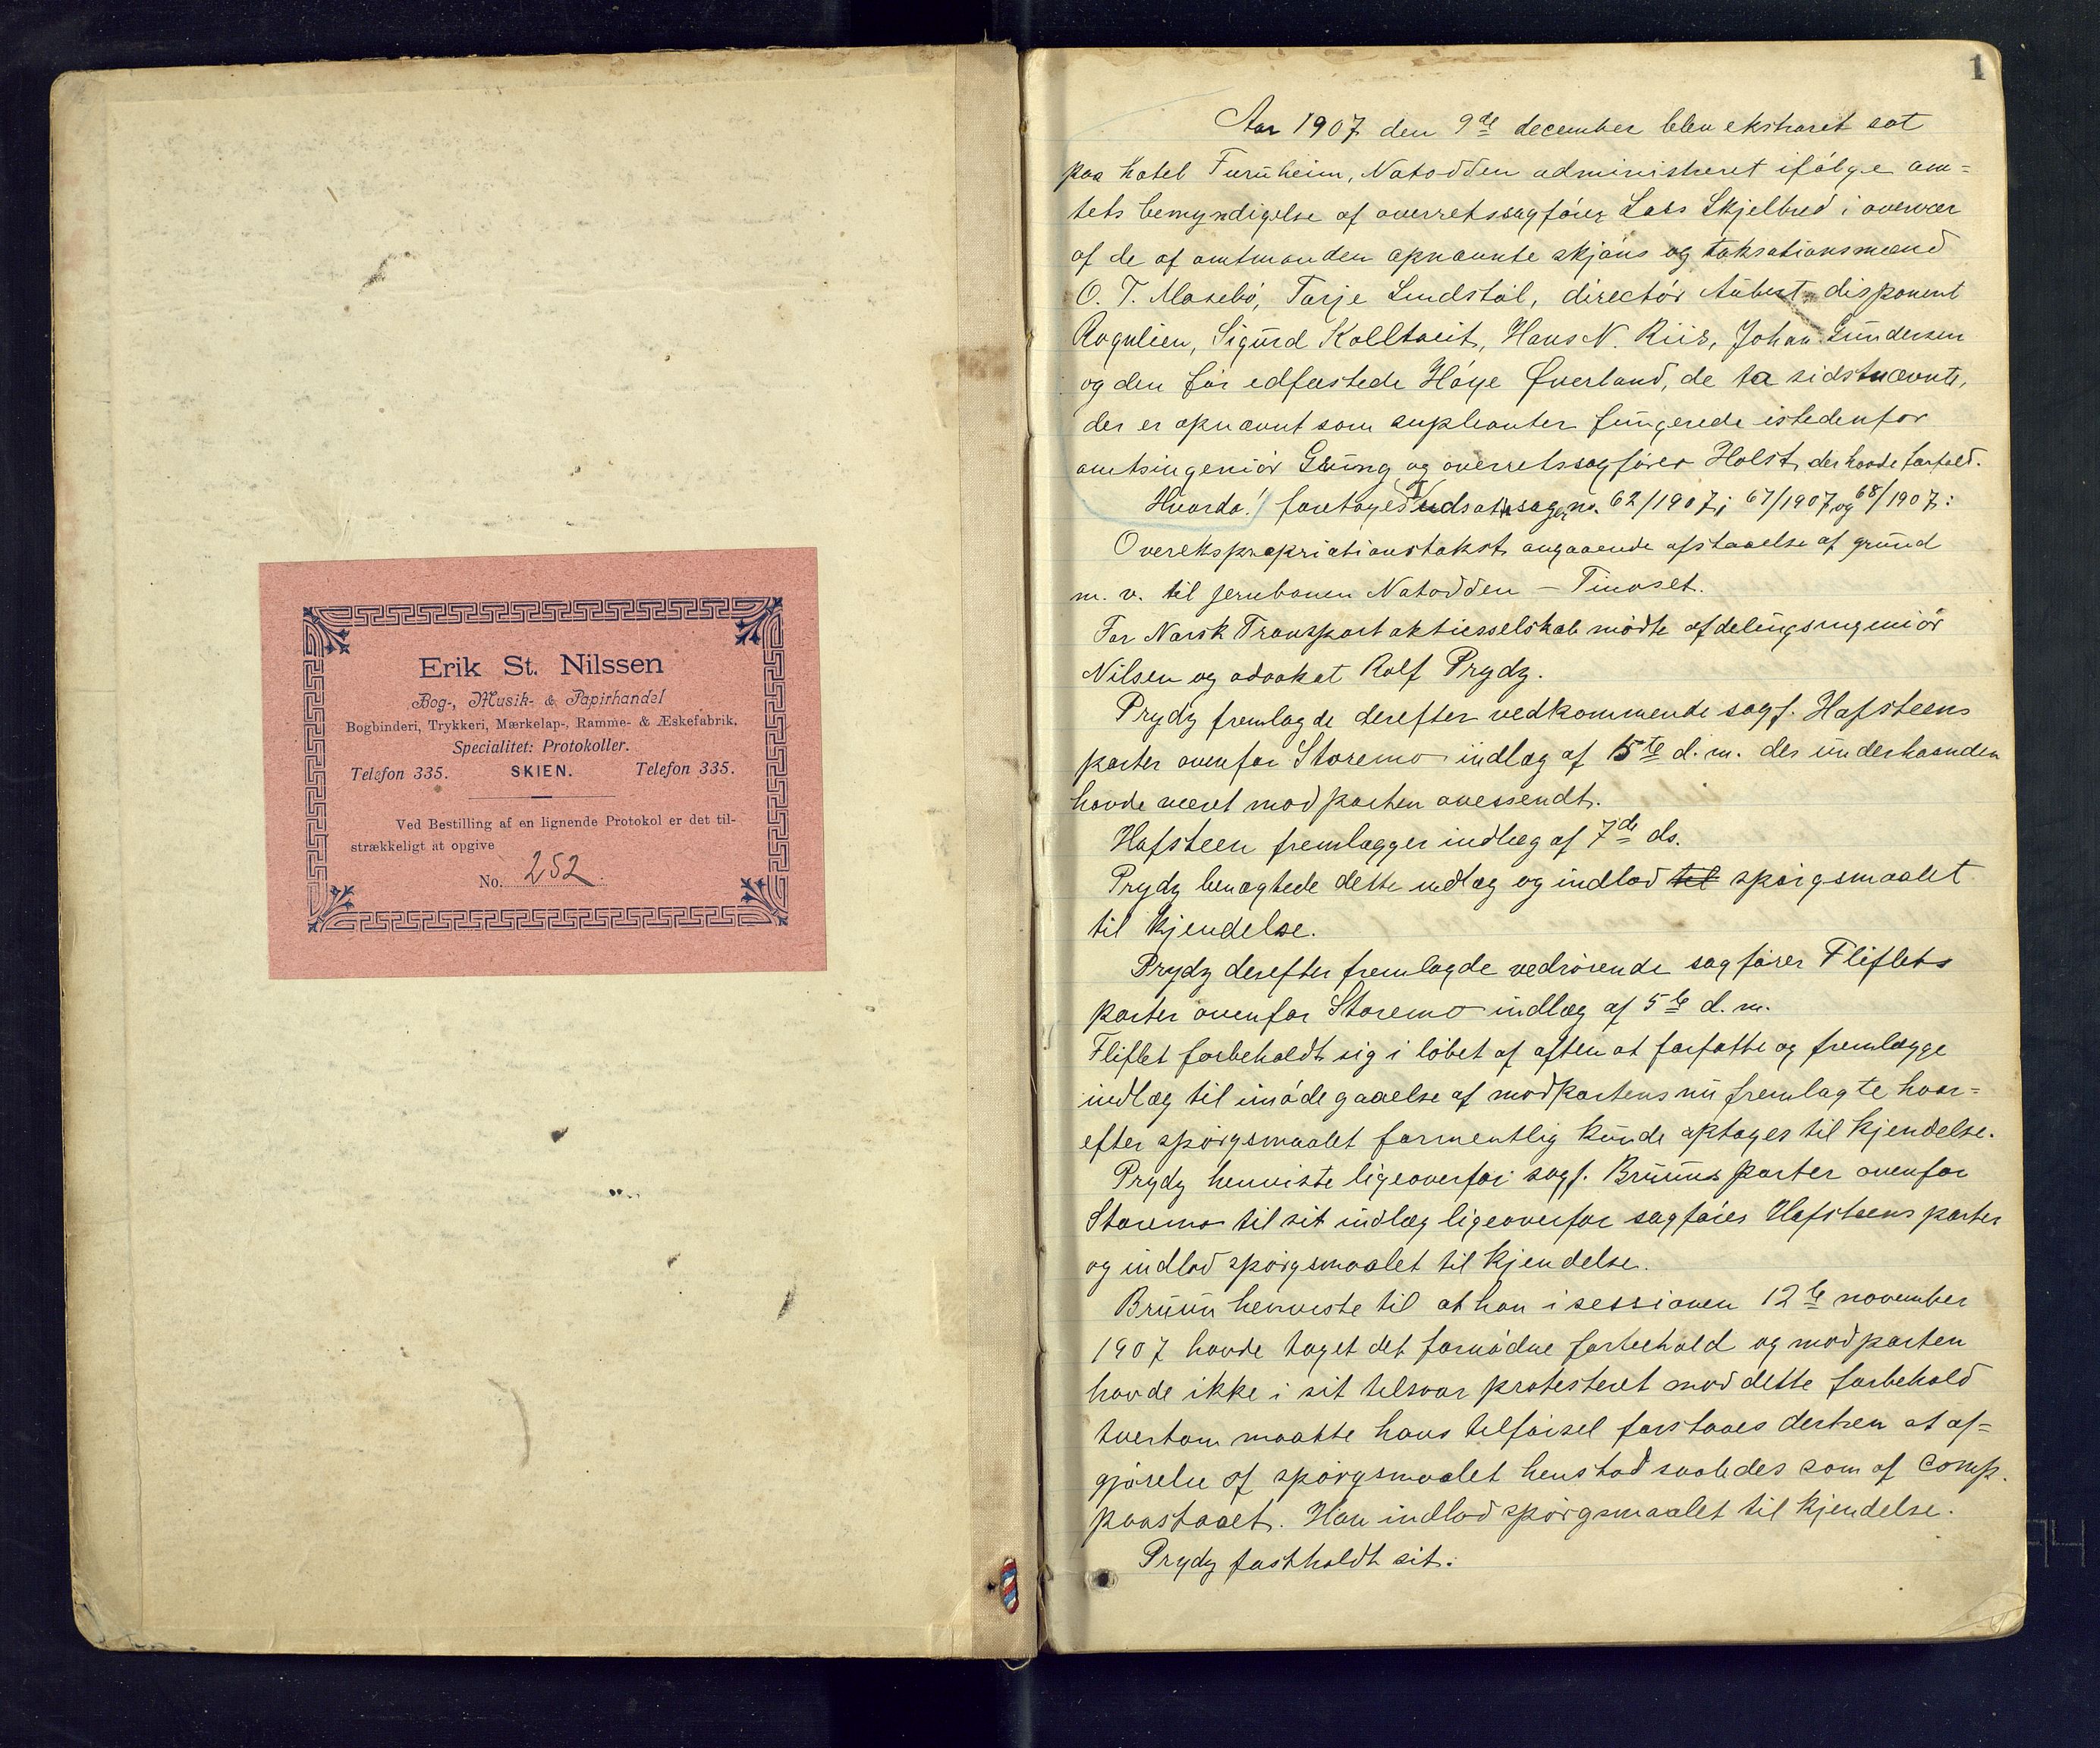 Erik St. Nilssen
Bog-, Musik- & Papirhandel
Bogbinderi, Trykkeri, Mærkelap-, Ramme- & Æskefabrik.
Specialitet: Protokoller.
Telefon 335. SKIEN. Telefon 335.
Ved Bestilling af en lignende Protokol er det til-
strækkeligt at opgive
No. 252
1
Aar 1907 den 9de december blev ekstraret sat
paa hotel Furuheim, Notodden administreret ifølge am=
tets bemyndigelse af overretssagfører Lars Skjelbred i overvær
af de af amtmanden opnævnte skjøns og taksationsmænd
O. T. Masebø, Tarje Lindstøl, directør Aubert, disponent
Rognlien, Sigurd Kolltveit, Hans N. Riis, Johan Gundersen
og den før edfæstede Høye Øverland, de to sidstnævnte,
der er opnævnt som supleanter fungerede istedenfor
amtsingeniør Gning og overretssagfører Holst, der havde forfald.
Hvorda! foretages Tudsatte sager no. 62/1907; 67/1907 og 68/1907:
Overekspropriationstakst angaaende afstaaelse af grund
m. v. til jernbanen Notodden – Tinoset.
For Norsk Transportaktieselskab mødte afdelingsingeniør
Nilsen og advokat Rolf Prydz.
Prydz fremlagde derefter vedkommende sagf. Hafsteens
parter ovenfor Storemo indlæg af 5te d. m. der underhaanden
havde været modparten oversendt.
Hafsteen fremlægger indlæg af 7de ds.
Prydz benægtede dette indlæg og indlod til spørgsmaalet
til kjendelse.
Prydz derefter fremlagde vedrørende sagfører Fliflets
parter ovenfor Storemo indlæg af 5te d. m.
Fliflet forbeholdt sig i løbet af aften at forfatte og fremlægge
indlæg til imødegaaelse af modpartens nu fremlagte hvor=
efter spørgsmaalet formentlig kunde optages til kjendelse.
Prydz henviste ligeoverfor sagf. Bruuns parter ovenfor
Storemo til sit indlæg ligeoverfor sagfører Hafsteens parter
og indlod spørgsmaalet til kjendelse.
Bruun henviste til at han i sessionen 12te november
1907 havde taget det fornødne forbehold og modparten
havde ikke i sit tilsvar protesteret mod dette forbehold
tvertom maatte hans tilførsel forstaaes derhen at af=
gjørelse af spørgsmaalet henstod saaledes som af comp.
paastaaet. Han indlod spørgsmaalet til kjendelse.
Prydz fastholdt sit.